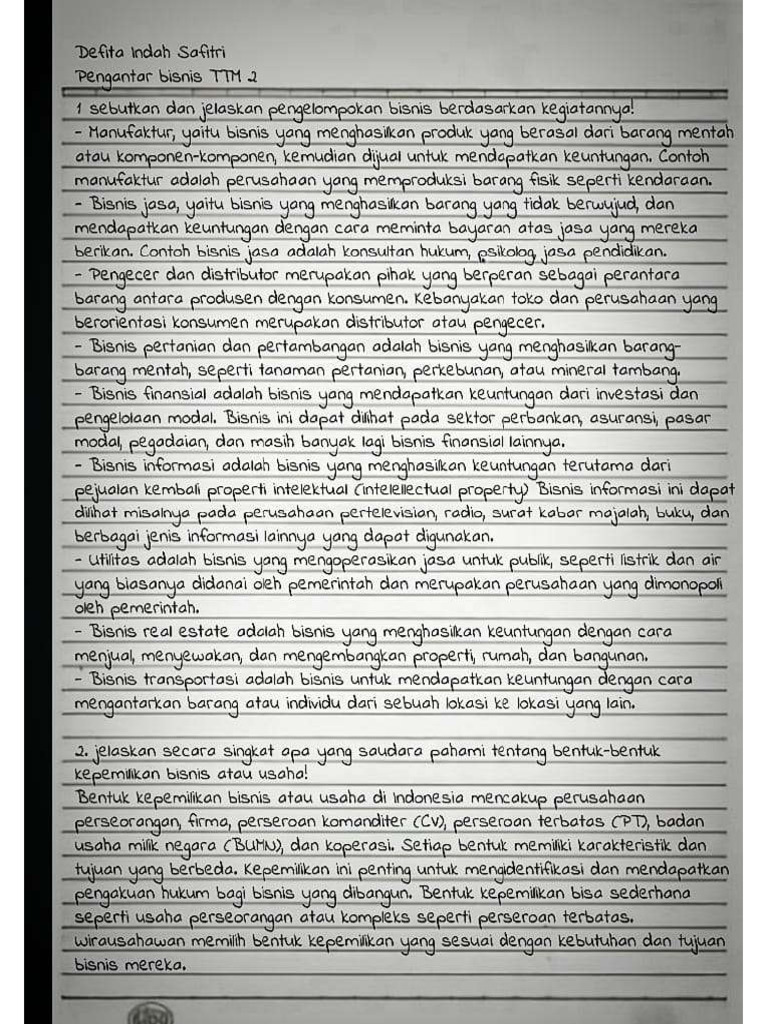 Defita Indah Safitri
Pengantar bisnis TTM 2
1 sebutkan dan jelaskan pengelompokan bisnis berdasarkan kegiatannya!
- Manufaktur, yaitu bisnis yang menghasilkan produk yang berasal dari barang mentah
atau komponen-komponen, kemudian dijual untuk mendapatkan keuntungan. Contoh
manufaktur adalah perusahaan yang memproduksi barang fisik seperti kendaraan.
- Bisnis jasa, yaitu bisnis yang menghasilkan barang yang tidak berwujud, dan
mendapatkan keuntungan dengan cara meminta bayaran atas jasa yang mereka
berikan. Contoh bisnis jasa adalah konsultan hukum, psikolog, jasa pendidikan.
- Pengecer dan distributor merupakan pihak yang berperan sebagai perantara
barang antara produsen dengan konsumen. Kebanyakan toko dan perusahaan yang
berorientasi konsumen merupakan distributor atau pengecer.
- Bisnis pertanian dan pertambangan adalah bisnis yang menghasilkan barang-
barang mentah, seperti tanaman pertanian, perkebunan, atau mineral tambang.
- Bisnis finansial adalah bisnis yang mendapatkan keuntungan dari investasi dan
pengelolaan modal. Bisnis ini dapat dilihat pada sektor perbankan, asuransi, pasar
modal, pegadaian, dan masih banyak lagi bisnis finansial lainnya.
- Bisnis informasi adalah bisnis yang menghasilkan keuntungan terutama dari
pejualan kembali properti intelektual (intelellectual property) Bisnis informasi ini dapat
dilihat misalnya pada perusahaan pertelevisian, radio, surat kabar majalah, buku, dan
berbagai jenis informasi lainnya yang dapat digunakan.
- Utilitas adalah bisnis yang mengoperasikan jasa untuk publik, seperti listrik dan air
yang biasanya didanai oleh pemerintah dan merupakan perusahaan yang dimonopoli
oleh pemerintah.
- Bisnis real estate adalah bisnis yang menghasilkan keuntungan dengan cara
menjual, menyewakan, dan mengembangkan properti, rumah, dan bangunan.
- Bisnis transportasi adalah bisnis untuk mendapatkan keuntungan dengan cara
mengantarkan barang atau individu dari sebuah lokasi ke lokasi yang lain.
2. jelaskan secara singkat apa yang saudara pahami tentang bentuk-bentuk
kepemilikan bisnis atau usaha!
Bentuk kepemilikan bisnis atau usaha di Indonesia mencakup perusahaan
perseorangan, firma, perseroan komanditer (CV), perseroan terbatas (PT), badan
usaha milik negara (BUMN), dan koperasi. Setiap bentuk memiliki karakteristik dan
tujuan yang berbeda. Kepemilikan ini penting untuk mengidentifikasi dan mendapatkan
pengakuan hukum bagi bisnis yang dibangun. Bentuk kepemilikan bisa sederhana
seperti usaha perseorangan atau kompleks seperti perseroan terbatas.
wirausahawan memilih bentuk kepemilikan yang sesuai dengan kebutuhan dan tujuan
bisnis mereka.